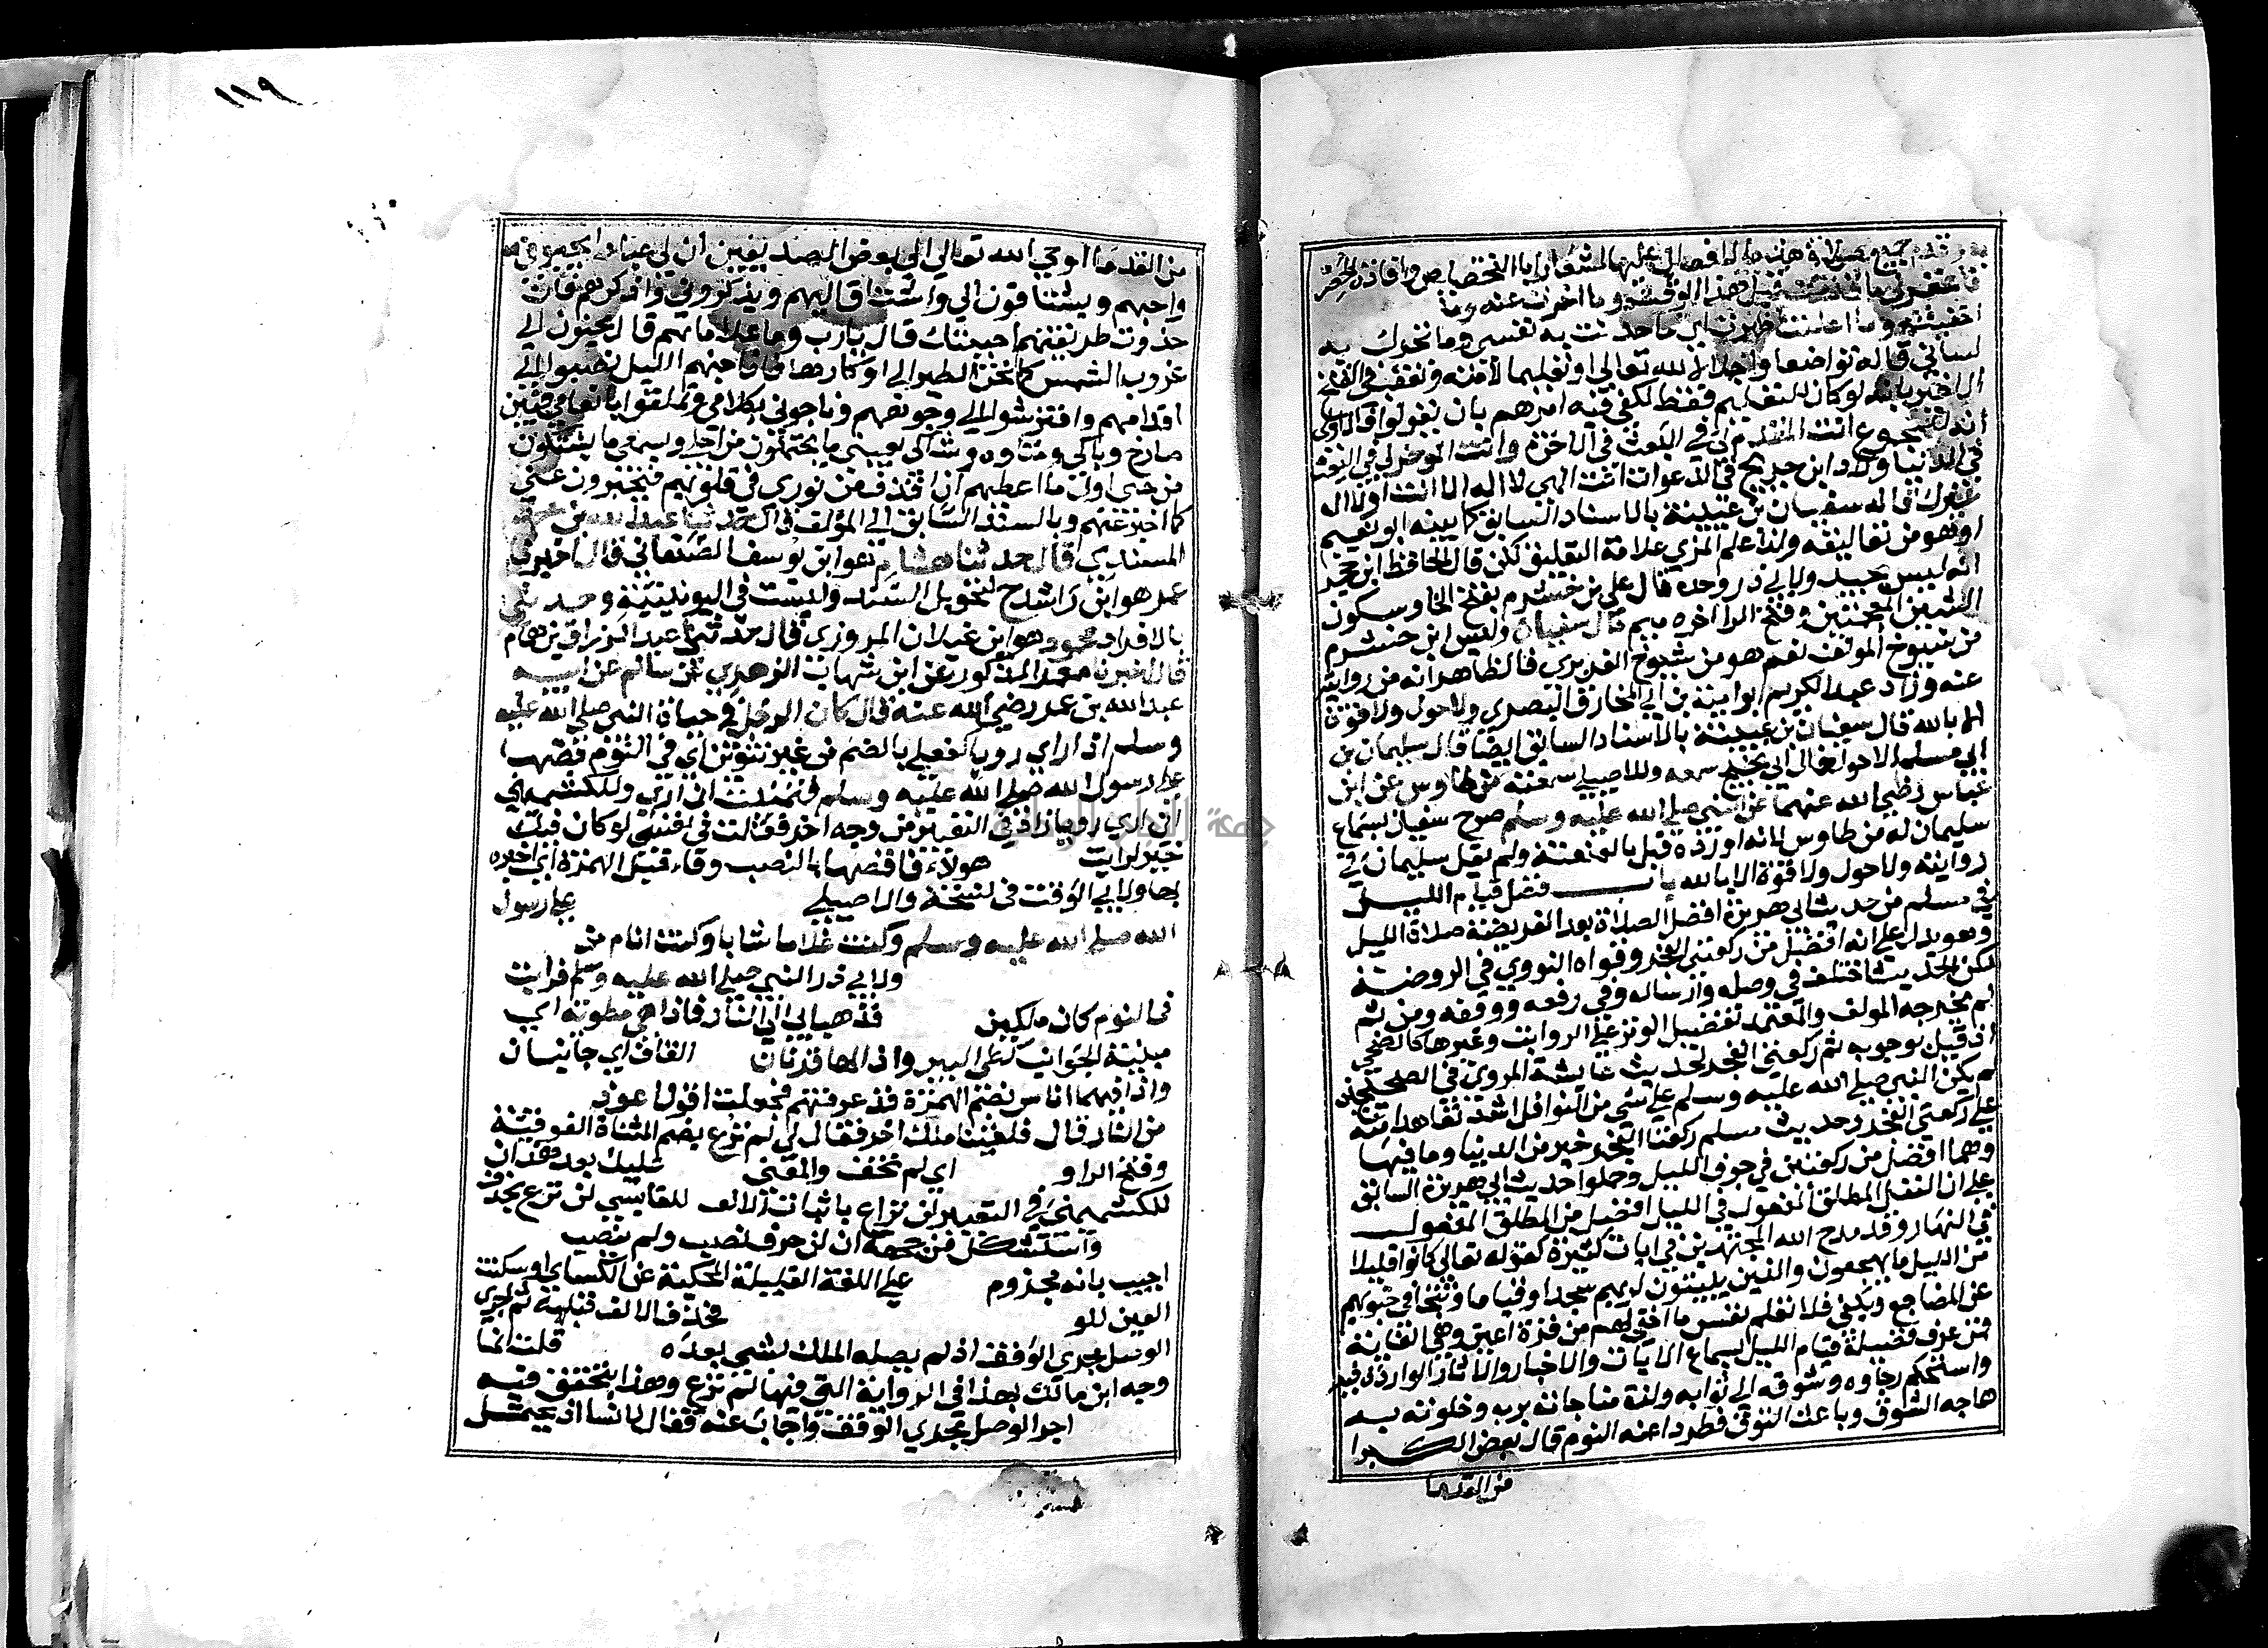 فاغفر لي ما قدمت قبل هذا الوقت وما اخرت عنه وما
لساني قاله تواضعا واجلالا لله تعالى او تعليما لامته وتعقب في الفتح
الاخير بانه لو كان للتعليم فقط لكفى فيه امرهم بان يقولوا فالاولى
انه للمجموع انت المقدم لي في البعث في الاخرة وانت الموخر لي في البعث
في الدنيا وزاد ابن جريج في الدعوات انت الهي لا اله الا انت او لا اله
غيرك قال سفيان بن عيينة بالاسناد السابق كما بينه ابو نعيم
او هو من تعاليقه ولذا علم المزي علامة التعليق لكن قال الحافظ ابن حجر
انه ليس بجيد ولابي ذر وحده قال علي بن خشرم بفتح الخا وسكون
الشين المعجمتين وفتح الرا اخره ميم قال سفيان وليس ابن خشرم
من شيوخ المولف نعم هو من شيوخ الفربري فالظاهر انه من روايته
عنه وزاد عبد الكريم ابو امية بن ابي المخارق البصري ولا حول ولا قوة
الا بالله قال سفيان بن عيينة بالاسناد السابق ايضا قال سليمان بن
ابي مسلم الاحول خال ابي نجيح سمعه وللاصيلي سمعته من طاوس عن ابن
عباس رضي الله عنهما عن النبي صلي الله عليه وسلم صرح سفيان بسماع
سليمان له من طاوس لانه اورده قبل بالعنعنة ولم يقل سليمان في
روايته ولا حول ولا قوة الا بالله باب فضل قيام الليل
في مسلم من حديث ابي هريرة افضل الصلاة بعد الفريضة صلاة الليل
وهو يدل علي انه افضل من ركعتي الفجر وقواه النووي في الروضة
لكن الحديث اختلف في وصله وارساله وفي رفعه ووقفه ومن ثم
لم يخرجه المولف والمعتمد تفضيل الوتر علي الرواتب وغيرها كالضحى
اذ قيل بوجوبه ثم ركعتي الفجر لحديث عايشة المروي في الصحيحين
لم يكن النبي صلي الله عليه وسلم علي شي من النوافل اشد تعاهدا منه
علي ركعتي الفجر وحديث مسلم ركعتا الفجر خير من الدنيا وما فيها
وهما افضل من ركعتين في جوف الليل وحملوا حديث ابي هريرة السابق
علي ان النفل المطلق المفعول في الليل افضل من المطلق المفعول
في النهار وقد مدح الله المجتهدين في ايات كثيرة كقوله تعالي كانوا قليلا
من الليل ما يهجعون والذين يبيتون لربهم سجدا وقياما وتتجافى جنوبهم
عن المضاجع ويكفي فلا تعلم نفس ما اخفي لهم من قرة اعين وهي الغاية
فمن عرف فضيلة قيام الليل بسماع الايات والاخبار والاثار الواردة فيه
واستحكم رجاوه وشوقه الي ثوابه ولذة مناجاته بربه وخلوته به
هاجه الشوق وباعث التوق فطردا عنه النوم قال بعض الكبرا
من القدما
١١٩
من القدما اوحي الله تعالي الي بعض الصديقين ان لي عبادا يحبوني
واحبهم ويشتاقون الي واشتاق اليهم ويذكروني واذكرهم فان
حذوت طريقتهم احببتك قال يارب وما علاماتهم قال يحنون الي
غروب الشمس كما تحن الطير الي اوكارها فاذا جنهم الليل نصبوا الي
اقدامهم وافترشوا الي وجوههم وناجوني بكلامي وتملقوا بانعامي فبين
صارخ وباكي ومتاوه وشاكي بعيني ما يتحملون من اجلي وبسمعي ما يشتكون
من حبي اول ما اعطيهم ان اقذف من نوري في قلوبهم فيخبرون عني
كما اخبر عنهم وبالسند السابق الي المولف قال حدثنا عبد الله بن محمد
المسندي قال حدثنا هشام هو ابن يوسف الصنعاني قال اخبرنا
معمر هو ابن راشد ح لتحويل السند وليست في اليونينية وحدثني
بالافراد محمود هو ابن غيلان المروزي قال حدثنا عبد الرزاق بن همام
قال اخبرنا معمر المذكور عن ابن شهاب الزهري عن سالم عن ابيه
عبد الله بن عمر رضي الله عنه قال كان الرجل في حياة النبي صلي الله عليه
وسلم اذا راي رويا كفعلي بالضم من غير تنوين اي في النوم قصها
علي رسول الله صلي الله عليه وسلم فتمنيت ان اري وللكشميهني
اني اري رويا زاد في التعبير من وجه اخر فقلت في نفسي لو كان فيك
خير لرايت هولاء فاقصها بالنصب وفاء قبل الهمزة اي اخبره
بها ولابي الوقت في نسخة والاصيلي علي رسول
الله صلي الله عليه وسلم وكنت غلاما شابا وكنت انام في
ولابي ذر النبي صلي الله عليه وسلم فرايت
في النوم كان ملكين فذهبا بي الي النار فاذا هي مطوية اي
مبنية الجوانب كطي البير واذا لها قرنان القاف اي جانبان
واذا فيها اناس بضم الهمزة قد عرفتهم فجعلت اقول اعوذ
من النار قال فلقينا ملك اخر فقال لي لم ترع بضم المثناة الفوقية
وفتح الراو اي لم تخف والمعنى عليك بعد هذا ان
للكشميهني في التعبير لن تراع باثبات الالف للقابسي لن ترع بحذف
واستشكل من جهة ان لن حرف نصب ولم تنصب
اجيب بانه مجزوم علي اللغة القليلة المحكية عن الكساي او سكنت
العين للو فحذف الالف قبله ثم اجري
الوصل مجري الوقف اذ لم يصله الملك بشي بعده قلت انما
وجه ابن مالك بهذا في الرواية التي فيها لم ترع وهذا يتحقق فيه
اجرا الوصل مجري الوقف واجاب عنه فقال لا نسلم اذ يحتمل